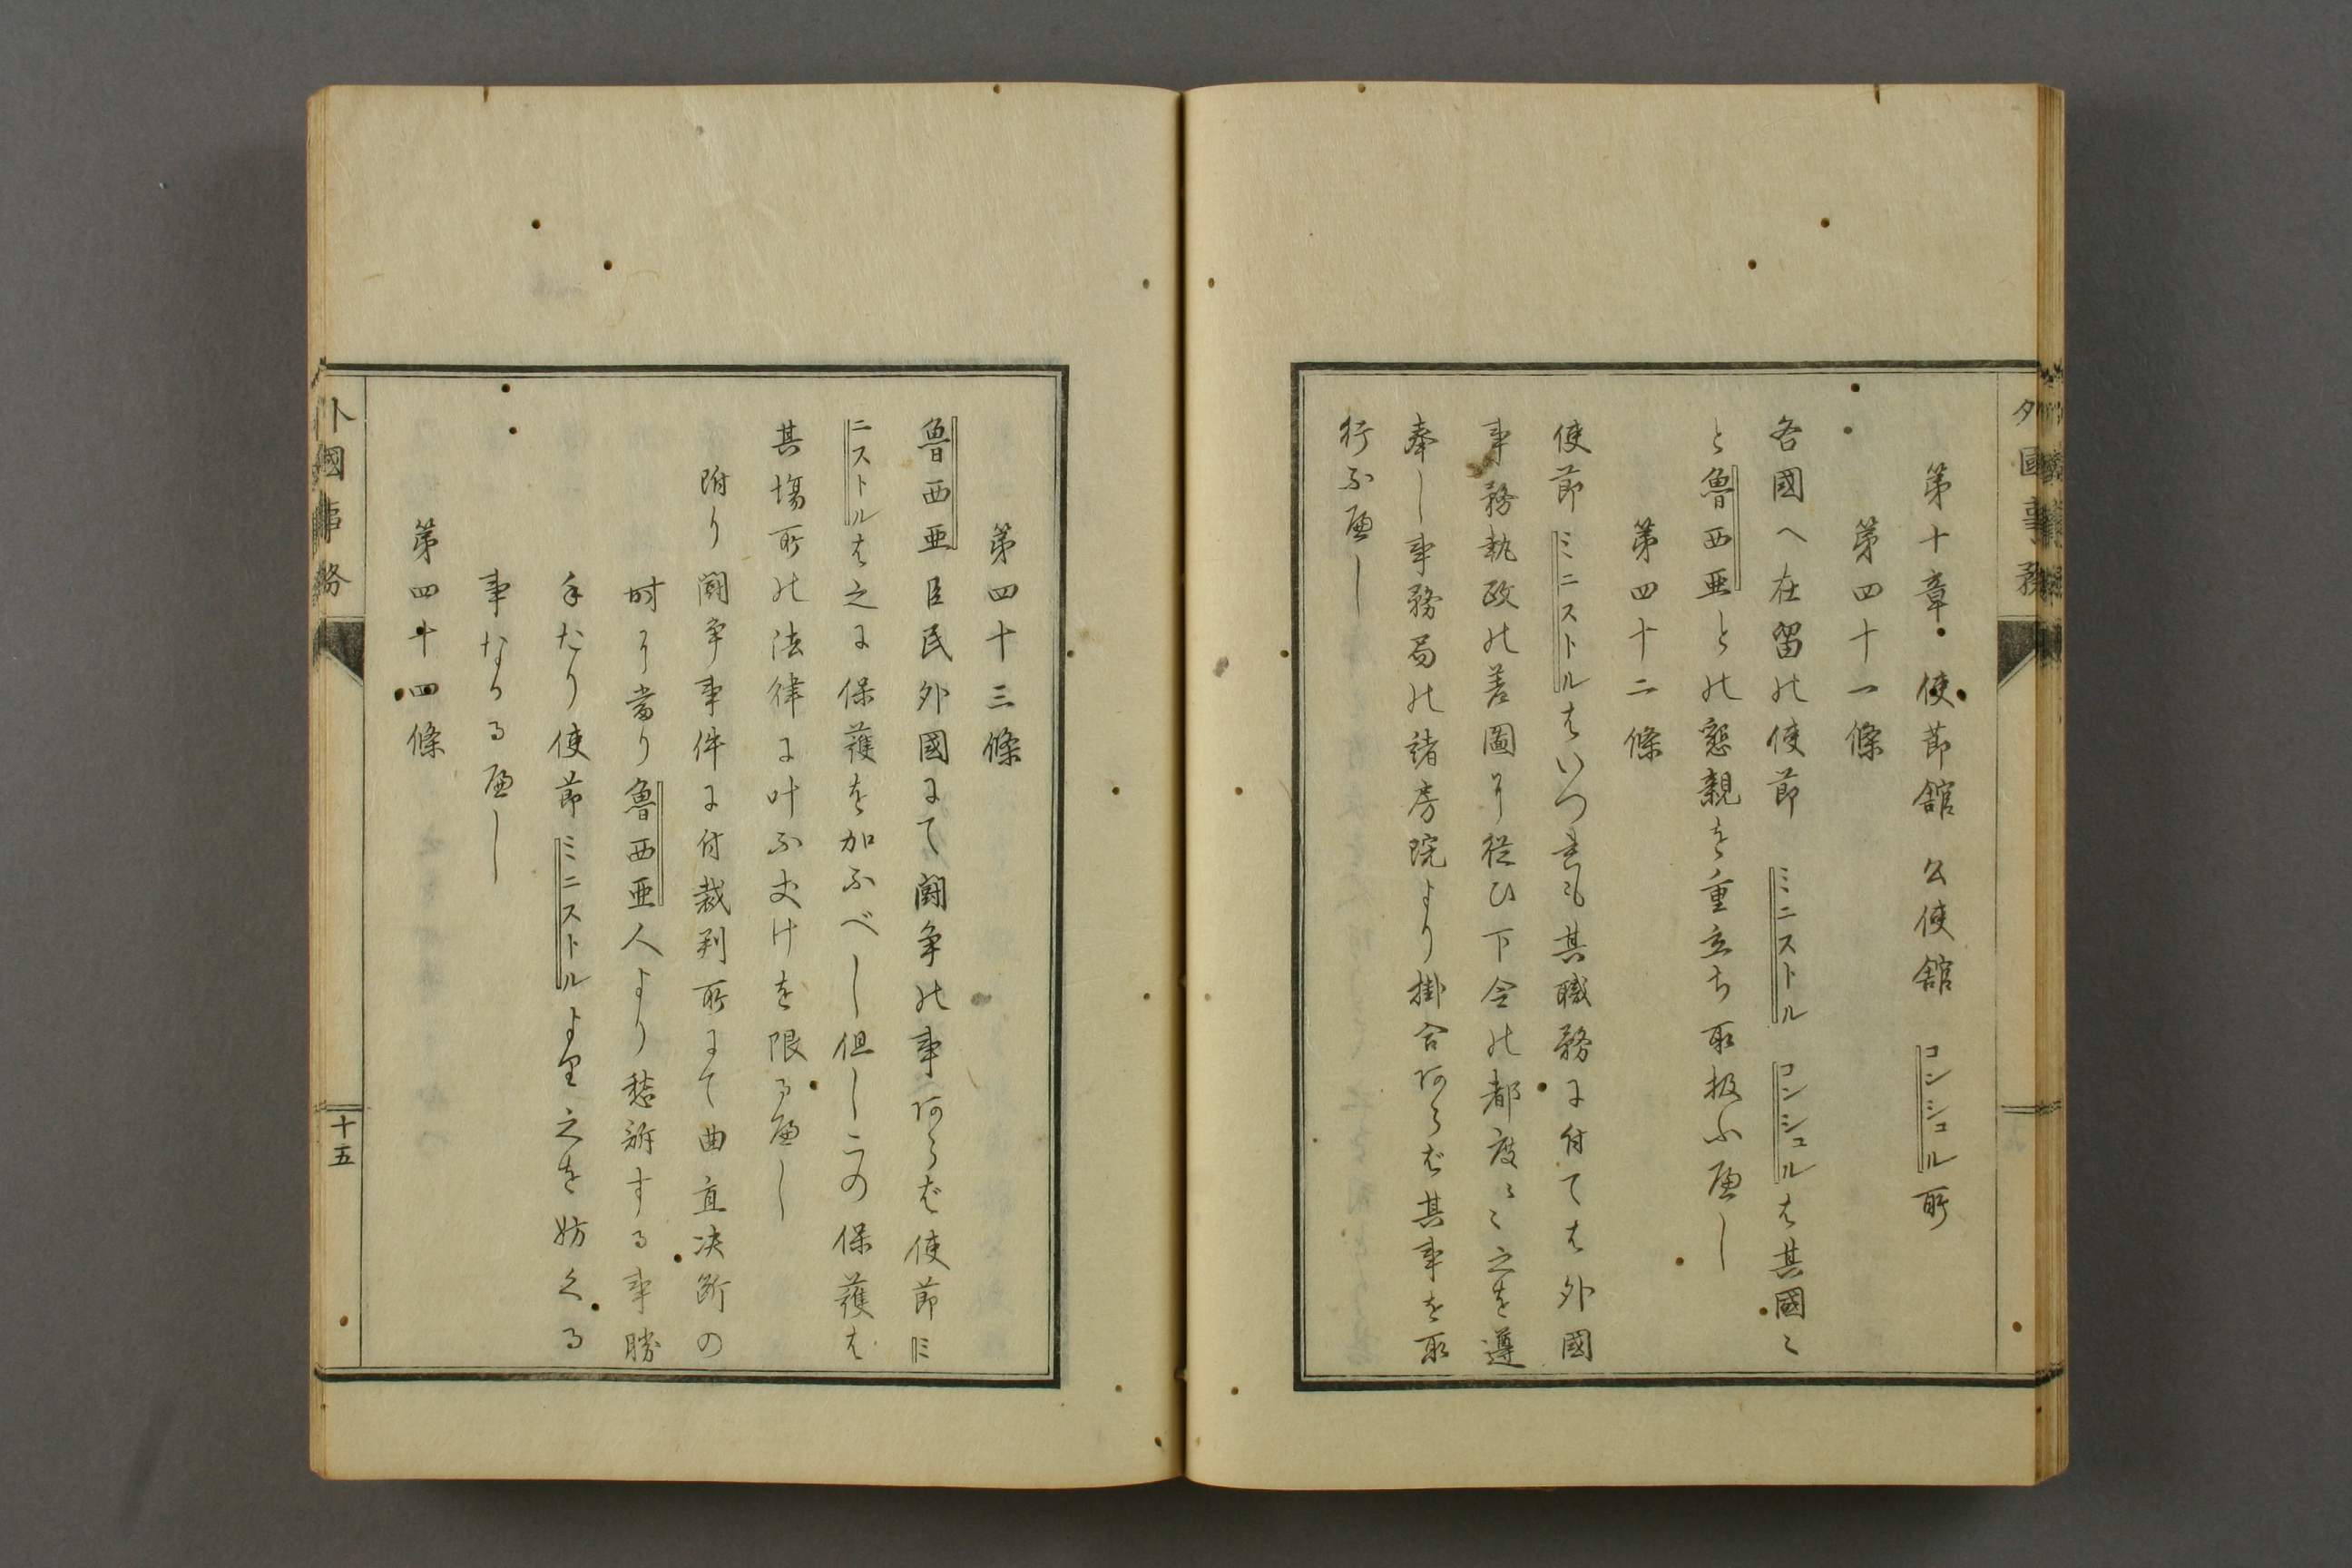 外國事務
第十章 使節舘 公使舘 コンシュル所
第四十一條
各國へ在留の使節 ミニストル コンシュルは其國〻
と魯西亜との懇親を重立ち取扱ふべし
第四十二條
使節 ミニストルはいつれも其職務に付ては外國
事務執政の善圖り從ひ下令の都度〻〻之を遵
奉し事務局の諸房院より掛合あらば其事を取
行ふべし
第四十三條
魯西亜臣民外國にて鬪争の事あらば使節ミ
ニストルは之に保護を加ふべし但しこの保護は
其場所の法律に叶ふ丈けを限るべし
附り 鬪争事件に付裁判所にて曲直决断の
時り當り魯西亜人より愁訴する事勝
手たり使節ミニストルより之を妨くる
事なかるべし
第四十四條
外國事務
十五